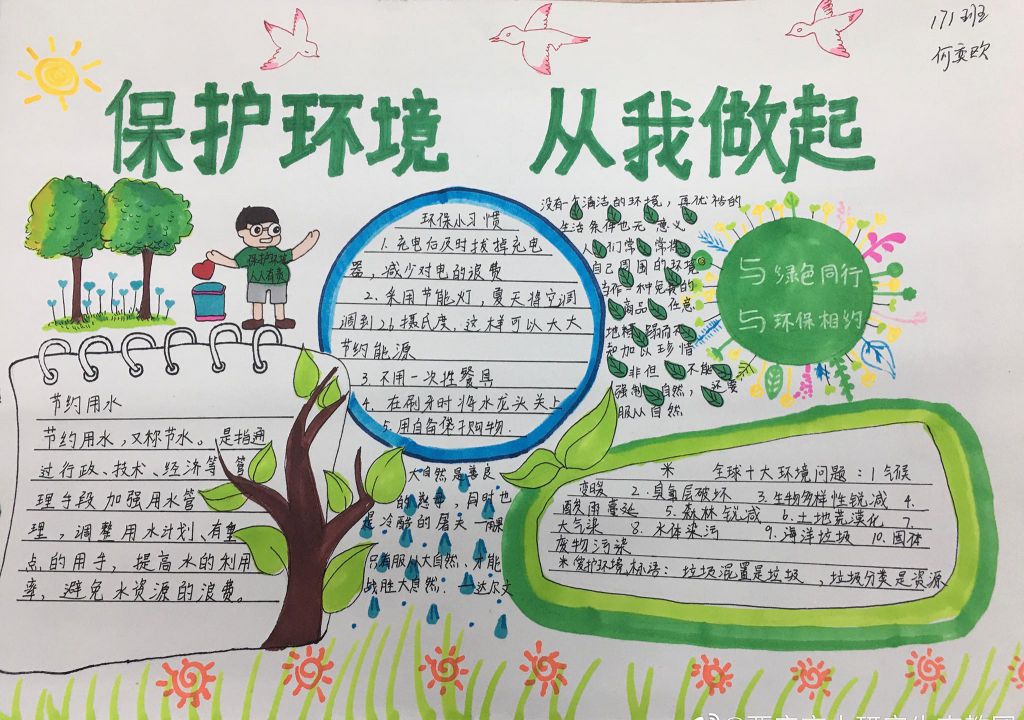 171班
保护环境 从我做起
保护环境
人人有责
环保小习惯
1.充电后及时拔掉充电
器，减少对电的浪费
2.采用节能灯，夏天将空调
调到26摄氏度.这样可以大大
节约能源
3.不用一次性餐具
4.在刷牙时将水龙头关上
5.用自备袋子购物.
没有一个清洁的环境，再优裕的
生活条件也无意义
人们常常将
自己周围的环境
当作一种免费的
商品，任意
地糟蹋而不
知加以珍惜
非但不能
强制自然，还要
服从自然
与绿色同行
与环保相约
节约用水
节约用水，又称节水。是指通
过行政、技术、经济等管
理手段加强用水管
理，调整用水计划、有重
点的用手，提高水的利用
率，避免水资源的浪费。
大自然是善良
的慈母，同时也
是冷酷的屠夫 一雨果
只有服从大自然，才能
战胜大自然. 一达尔文
※ 全球十大环境问题：1气候
变暖 2.臭氧层破坏 3.生物多样性锐减 4.
酸雨蔓延 5.森林锐减 6.土地荒漠化 7.
大气染 8.水体染污 9.海洋垃圾 10.固体
废物污染
※爱护环境标语：垃圾混置是垃圾，垃圾分类是资源